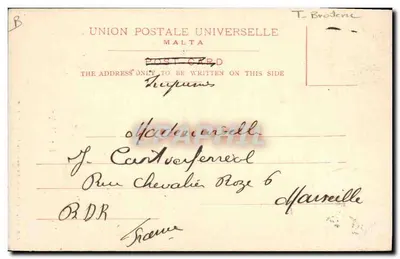 B
UNION POSTALE UNIVERSELLE
MALTA
POST CARD
THE ADDRESS ONLY TO BE WRITTEN ON THIS SIDE
Mademoiselle
J.
Rue Chevalier Roze 6
Marseille
RDR
France